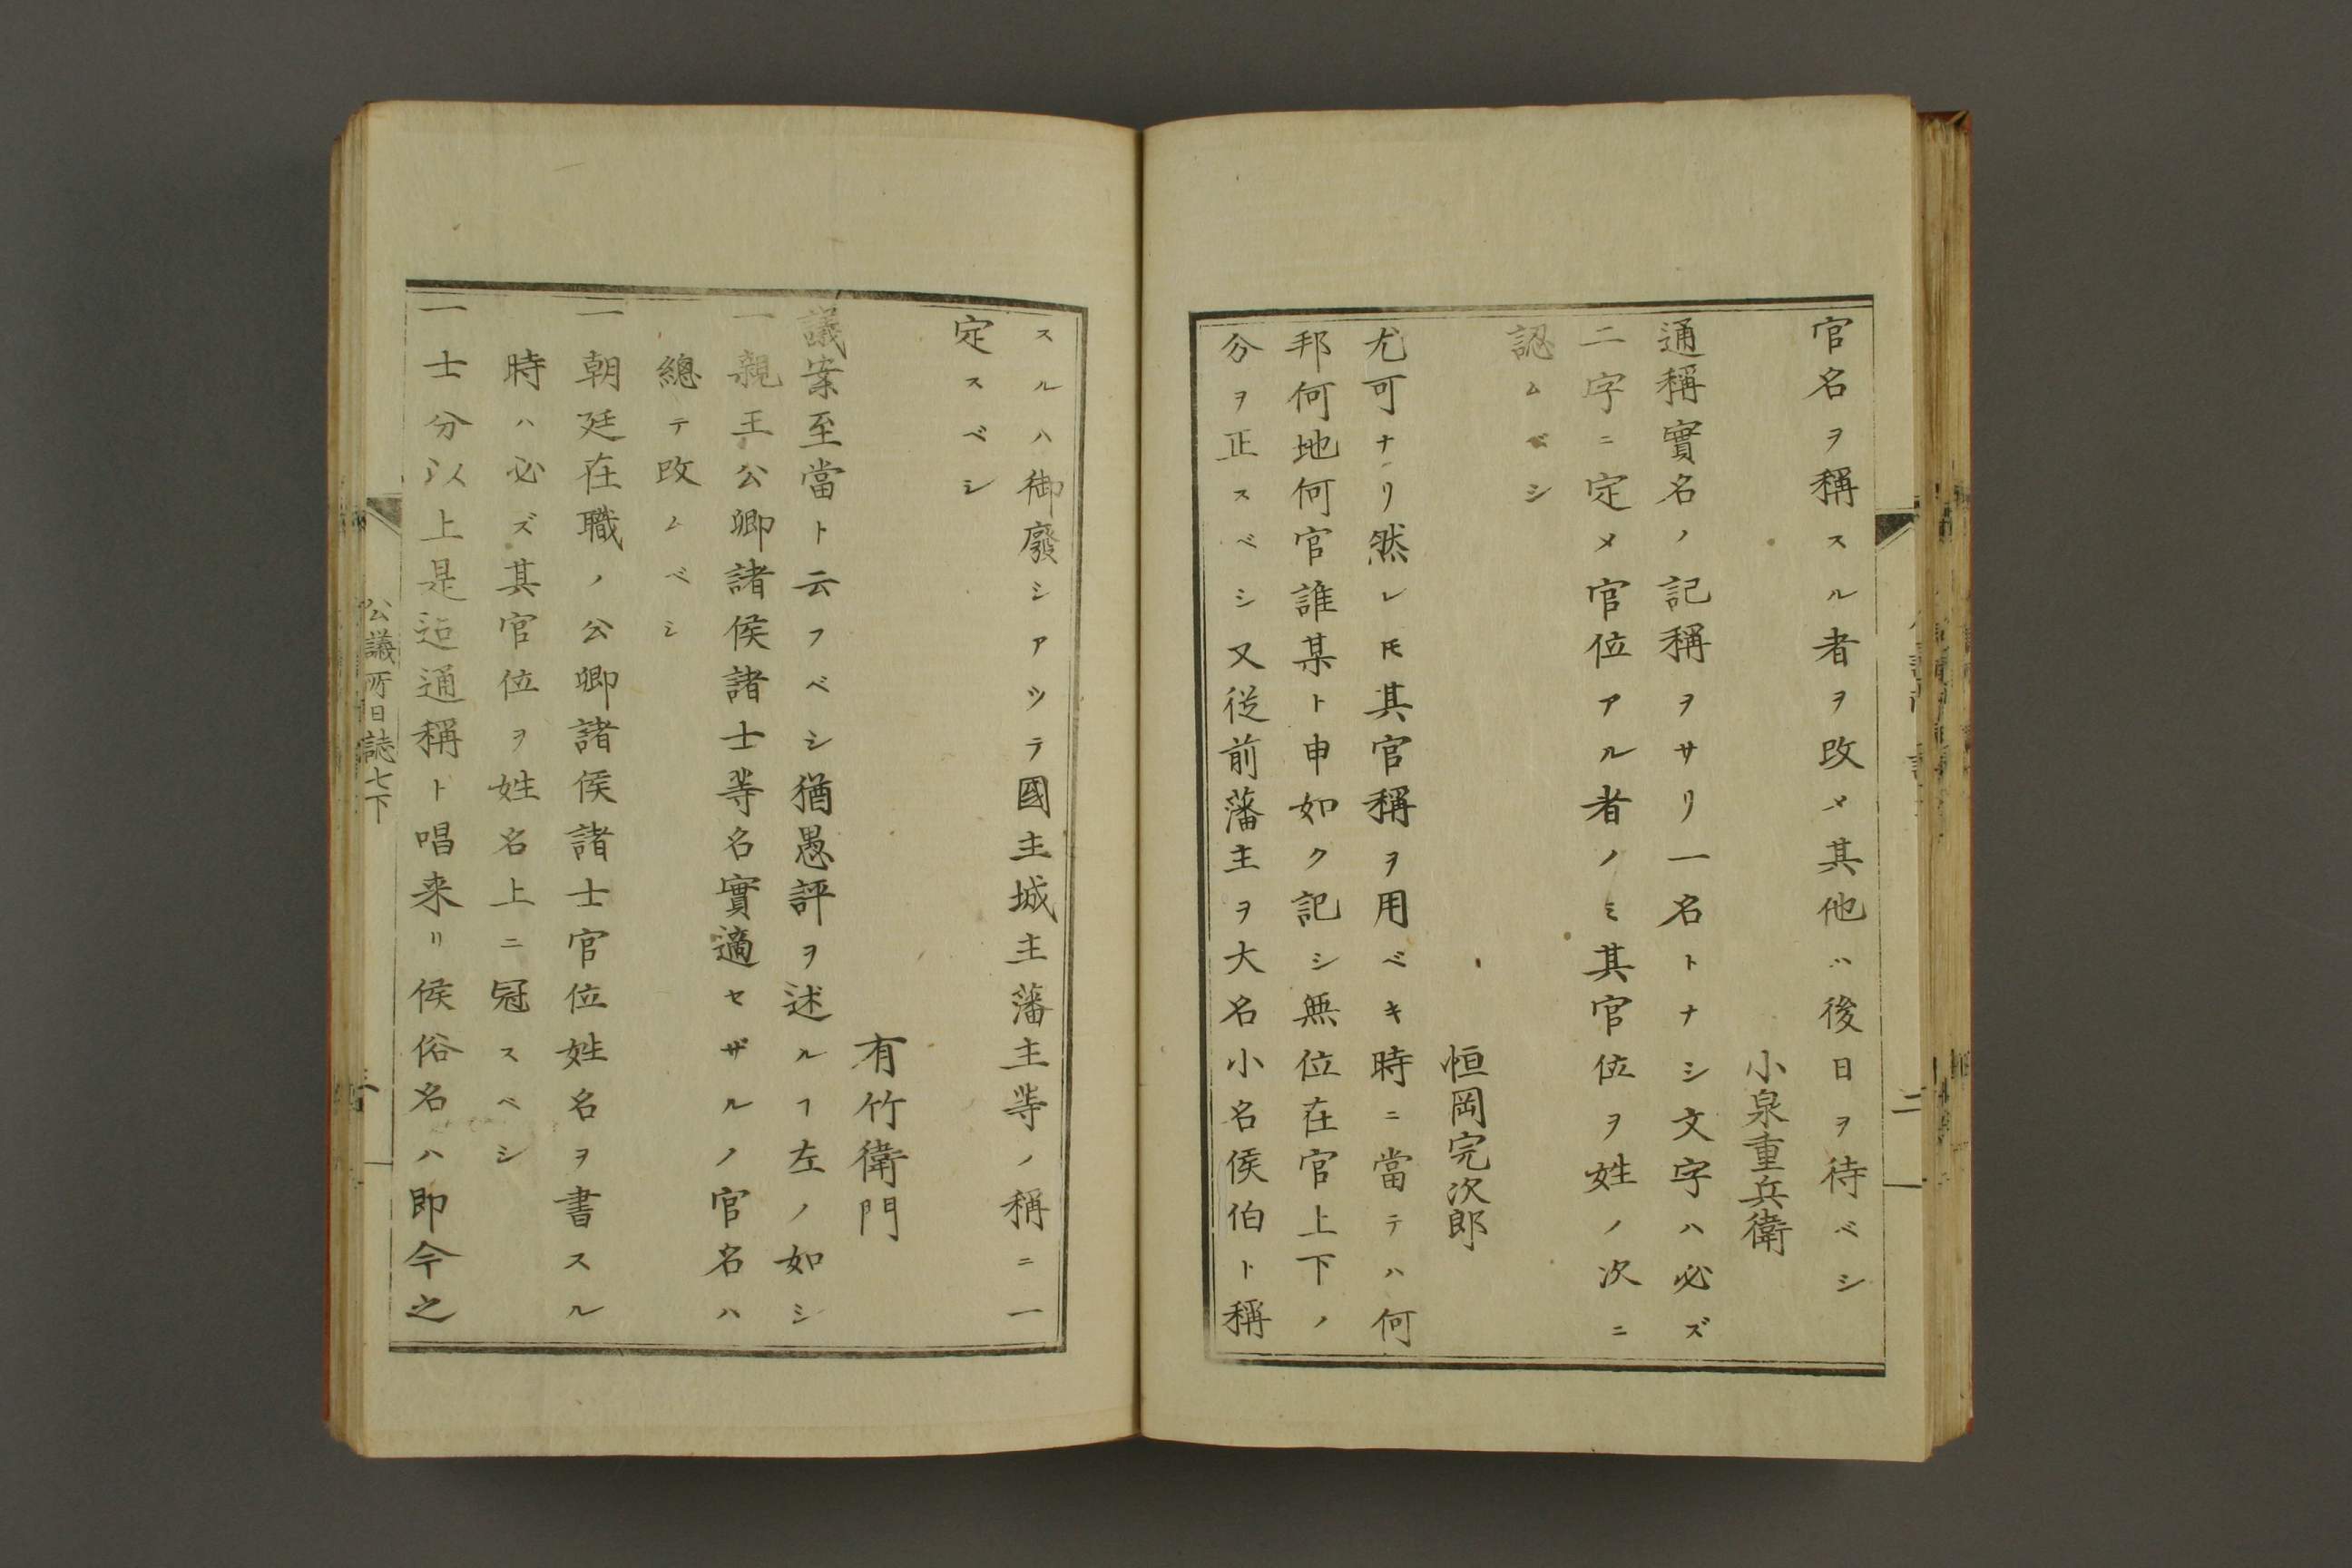 官名ヲ稱スル者ヲ改メ其他ハ後日ヲ待ベシ
小泉重兵衛
通稱實名ノ記稱ヲサリ一名トナシ文字ハ必ズ
二字ニ定メ官位アル者ノミ其官位ヲ姓ノ次ニ
認ムベシ
恒岡完次郎
尤可ナリ然レ𪜈其官稱ヲ用ベキ時ニ當テハ何
邦何地何官誰某ト申如ク記シ無位在官上下ノ
分ヲ正スベシ又従前藩主ヲ大名小名侯伯ト稱
スルハ御廢シアツテ國主城主藩主等ノ稱ニ一
定スベシ
有竹衛門
議案至當ト云フベシ猶愚評ヲ述ルヿ左ノ如シ
一親王公卿諸侯諸士等名實適セザルノ官名ハ
總テ改ムベシ
一朝廷在職ノ公卿諸侯諸士官位姓名ヲ書スル
時ハ必ズ其官位ヲ姓名上ニ冠スベシ
一士分以上是迄通稱ト唱来リ候俗名ハ即今之
公議所日誌七下